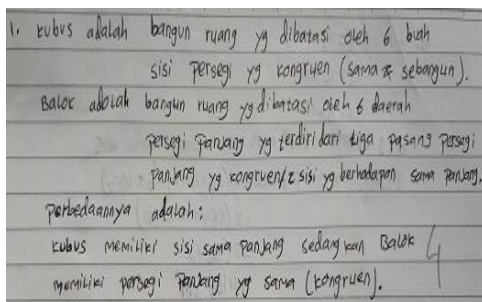 1. kubus adalah bangun ruang yg dibatasi oleh 6 buah
sisi persegi yg kongruen (sama & sebangun).
Balok adalah bangun ruang yg dibatasi oleh 6 daerah
persegi panjang yg terdiri dari tiga pasang persegi
panjang yg kongruen/2 sisi yg berhadapan sama panjang.
perbedaannya adalah:
kubus memiliki sisi sama panjang sedangkan Balok
memiliki persegi panjang yg sama (kongruen).
4